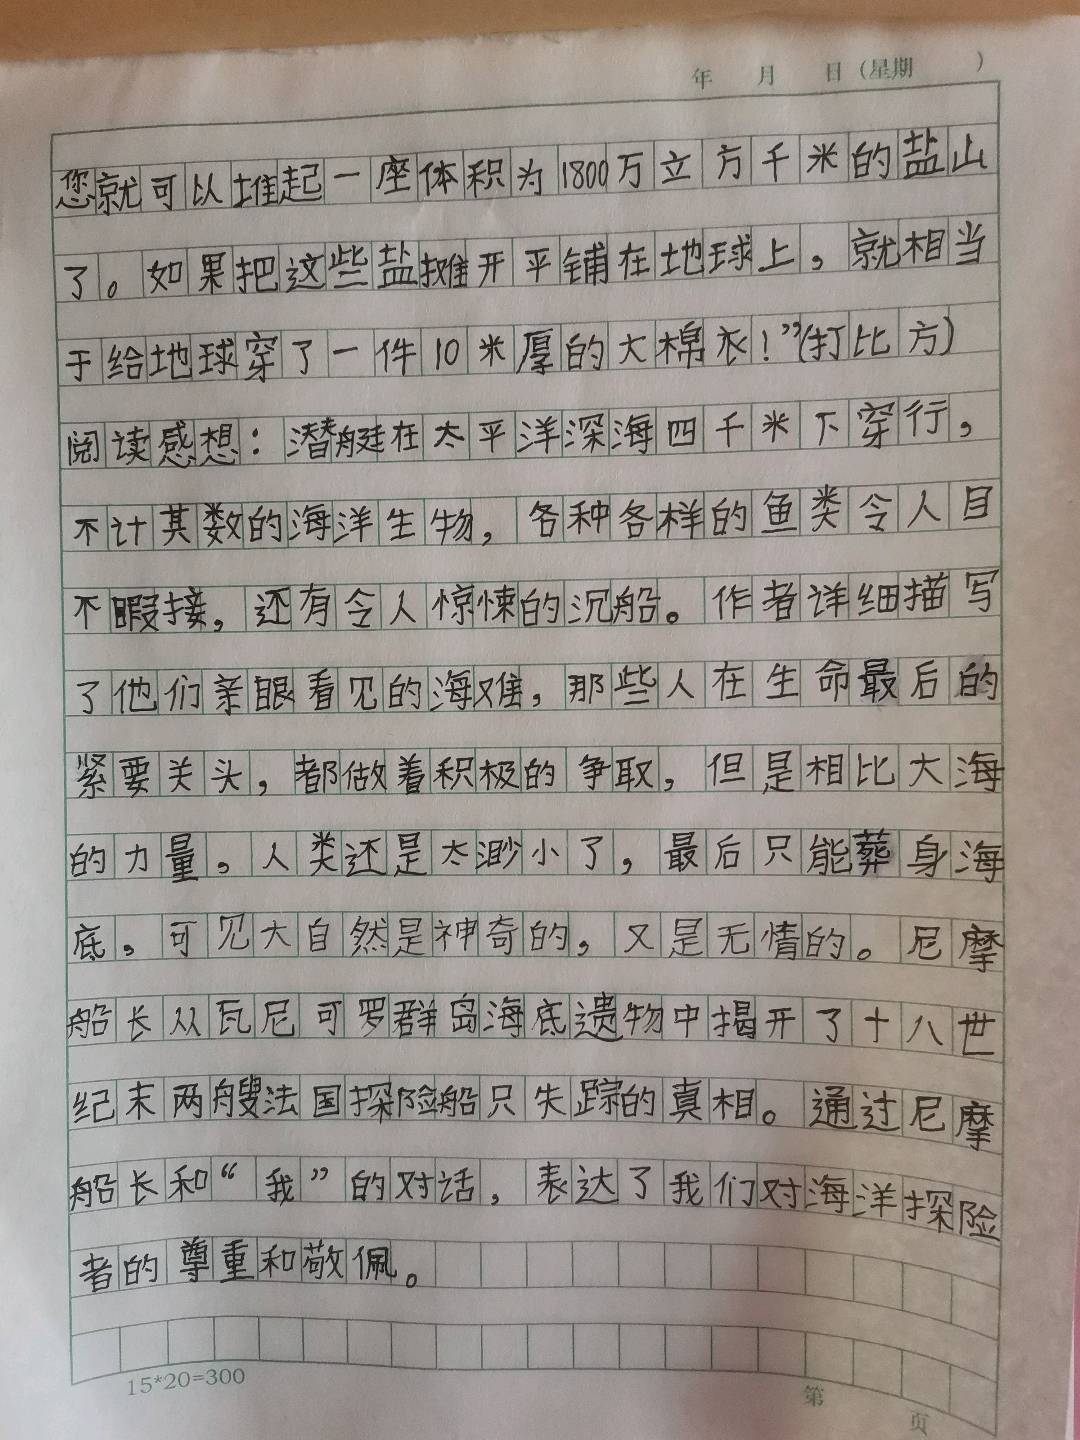 年 月 日（星期 ）
您就可以堆起一座体积为1800万立方千米的盐山
了。如果把这些盐摊开平铺在地球上，就相当
于给地球穿了一件10米厚的大棉衣！”(打比方)
阅读感想：潜艇在太平洋深海四千米下穿行，
不计其数的海洋生物，各种各样的鱼类令人目
不暇接，还有令人惊悚的沉船。作者详细描写
了他们亲眼看见的海难，那些人在生命最后的
紧要关头，都做着积极的争取，但是相比大海
的力量。人类还是太渺小了，最后只能葬身海
底。可见大自然是神奇的，又是无情的。尼摩
船长从瓦尼可罗群岛海底遗物中揭开了十八世
纪末两艘法国探险船只失踪的真相。通过尼摩
船长和“我”的对话，表达了我们对海洋探险
者的尊重和敬佩。
15*20=300
第 页